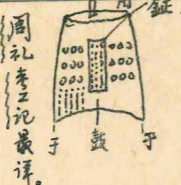 甬
鉦
周礼考工记最详。
于
鼓
于